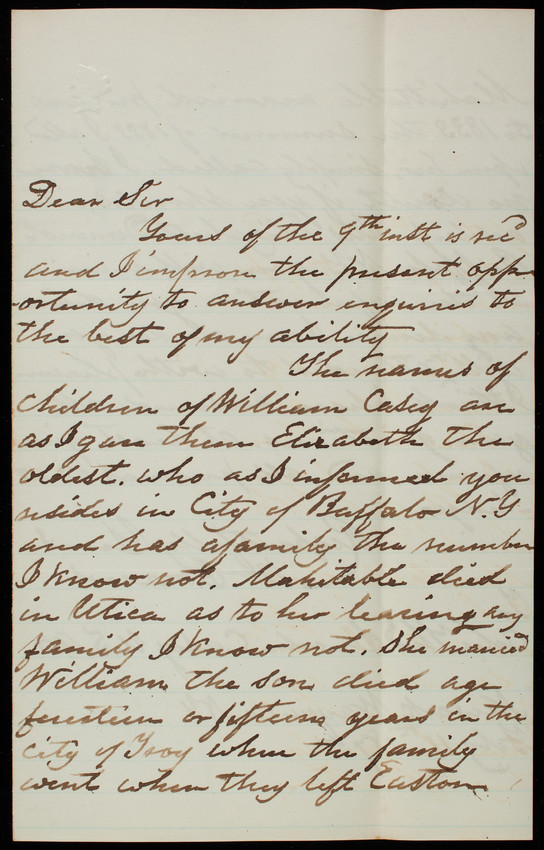 Dear Sir
Yours of the 9th inst is recd
and I improve the present opp-
ortunity to answer enquiries to
the best of my ability
The names of
children of William Casey are
as I gave them Elizabeth the
oldest. who as I informed you
resides in City of Buffalo N.Y
and has a family the number
I know not. Mahitable died
in Utica as to her leaving any
family I know not. She married
William the son died age
fourteen or fifteen years in the
city of Troy where the family
went when they left Easton